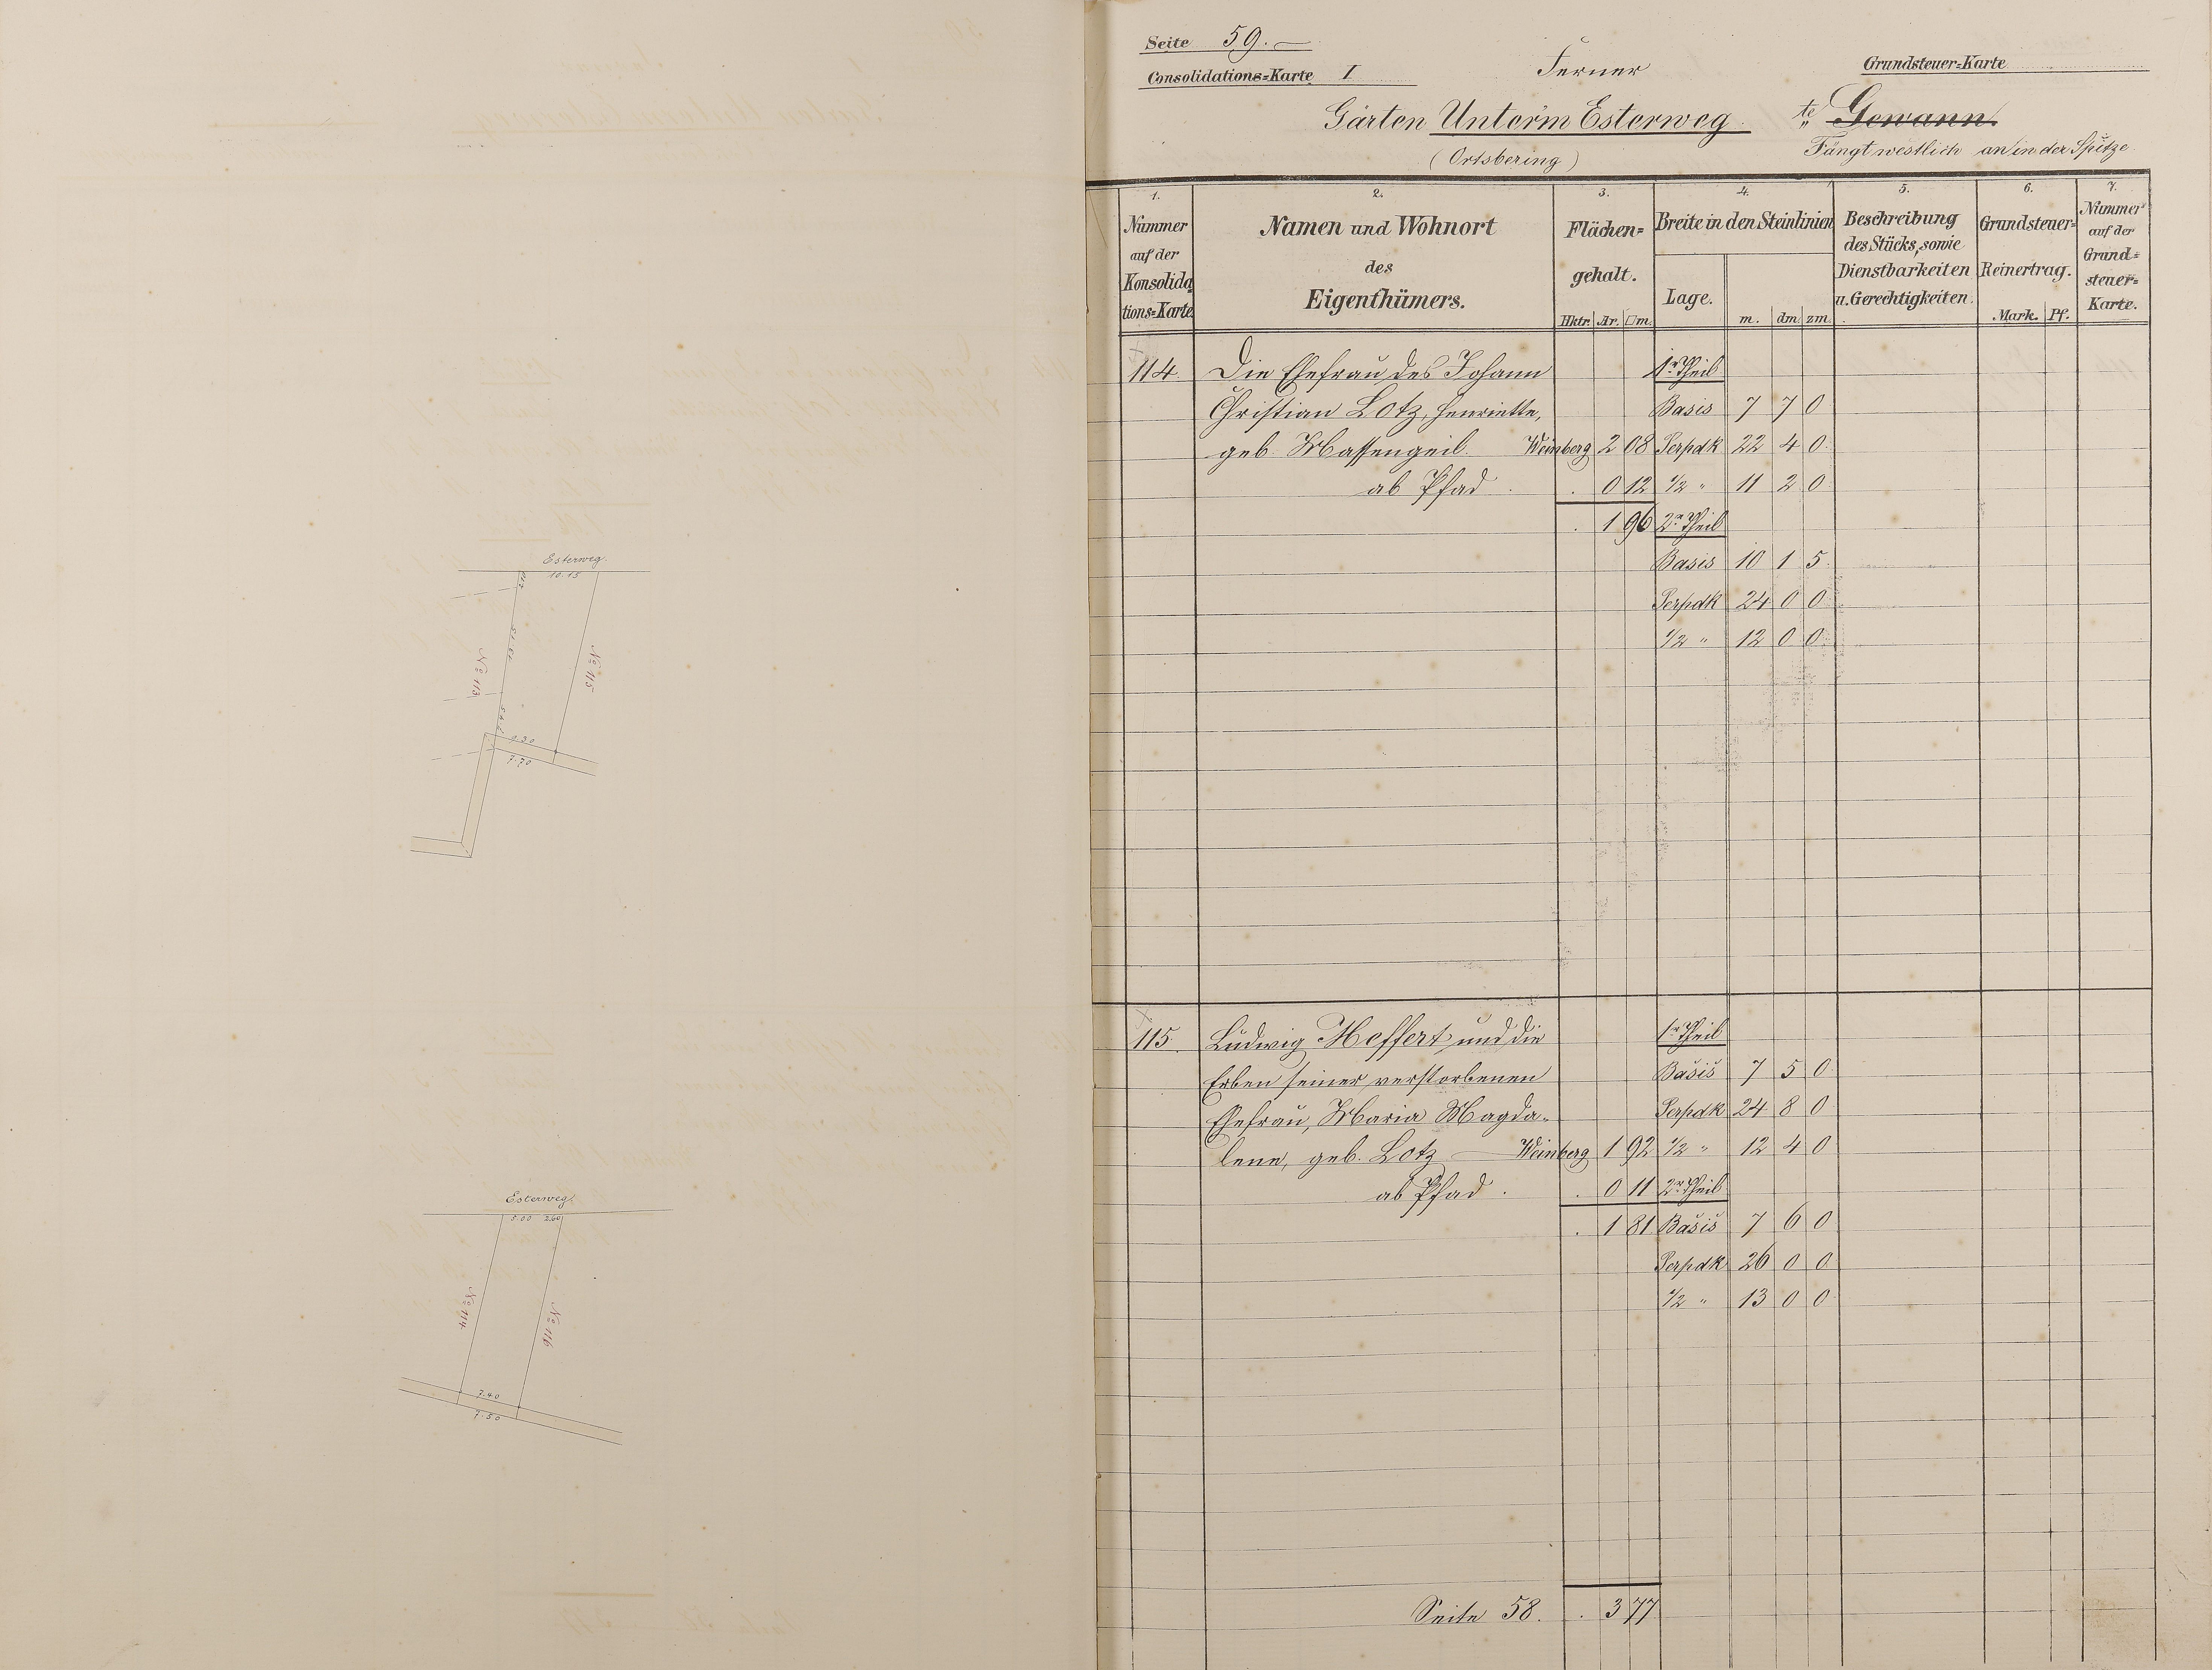 Esterweg.
10.15
0.20
15.02
5.45
No 113
No 115
0.30
7.70
Esterweg.
5.00 2.60
No 114
No 116
7.40
7.50
Seite 59.
Consolidations=Karte I
Ferner
Grundsteuer=Karte
Gärten Unter'm Esterweg. te Gewann.
(Ortsbering)
Fängt westlich an in der Spitze
1. 2. 3. 4. 5. 6. 7.
Nummer auf der Konsolidations=Karte
Namen und Wohnort des Eigenthümers.
Flächen=gehalt.
Hktr. Ar. □m.
Breite in den Steinlinien
Lage. m. dm. zm.
Beschreibung des Stücks, sowie Dienstbarkeiten u. Gerechtigkeiten.
Grundsteuer=Reinertrag.
Mark. Pf.
Nummer auf der Grund=steuer=Karte.
114. Die Ehefrau des Johann 1r Theil
Christian Lotz, Henriette, Basis 7 7 0
geb. Massengeil. Weinberg 2 08 Perpdk 22 4 0
ab Pfad . . 0 12 1/2 " 11 2 0
. 1 96 2r Theil
Basis 10 1 5
Perpdk 24 0 0
1/2 " 12 0 0
115. Ludwig Heffert und die 1r Theil
Erben seiner verstorbenen Basis 7 5 0
Ehefrau, Maria Magda- Perpdk 24 8 0
lene, geb. Lotz — Weinberg 1 92 1/2 " 12 4 0
ab Pfad . . 0 11 2r Theil
. 1 81 Basis 7 6 0
Perpdk 26 0 0
1/2 " 13 0 0
Seite 58. . 3 77